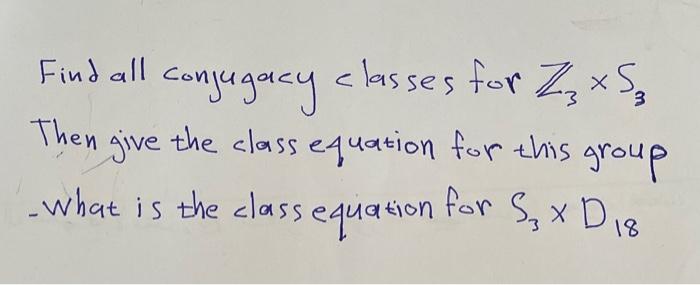 Find all conjugacy classes for ℤ₃ × S₃
Then give the class equation for this group
- What is the class equation for S₃ × D₁₈